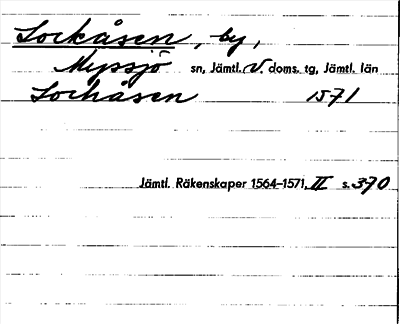 Lockåsen, by,
Myssjö sn, Jämtl. V. doms. tg, Jämtl. län
Lochåsen 1571
Jämtl. Räkenskaper 1564–1571, II s. 370